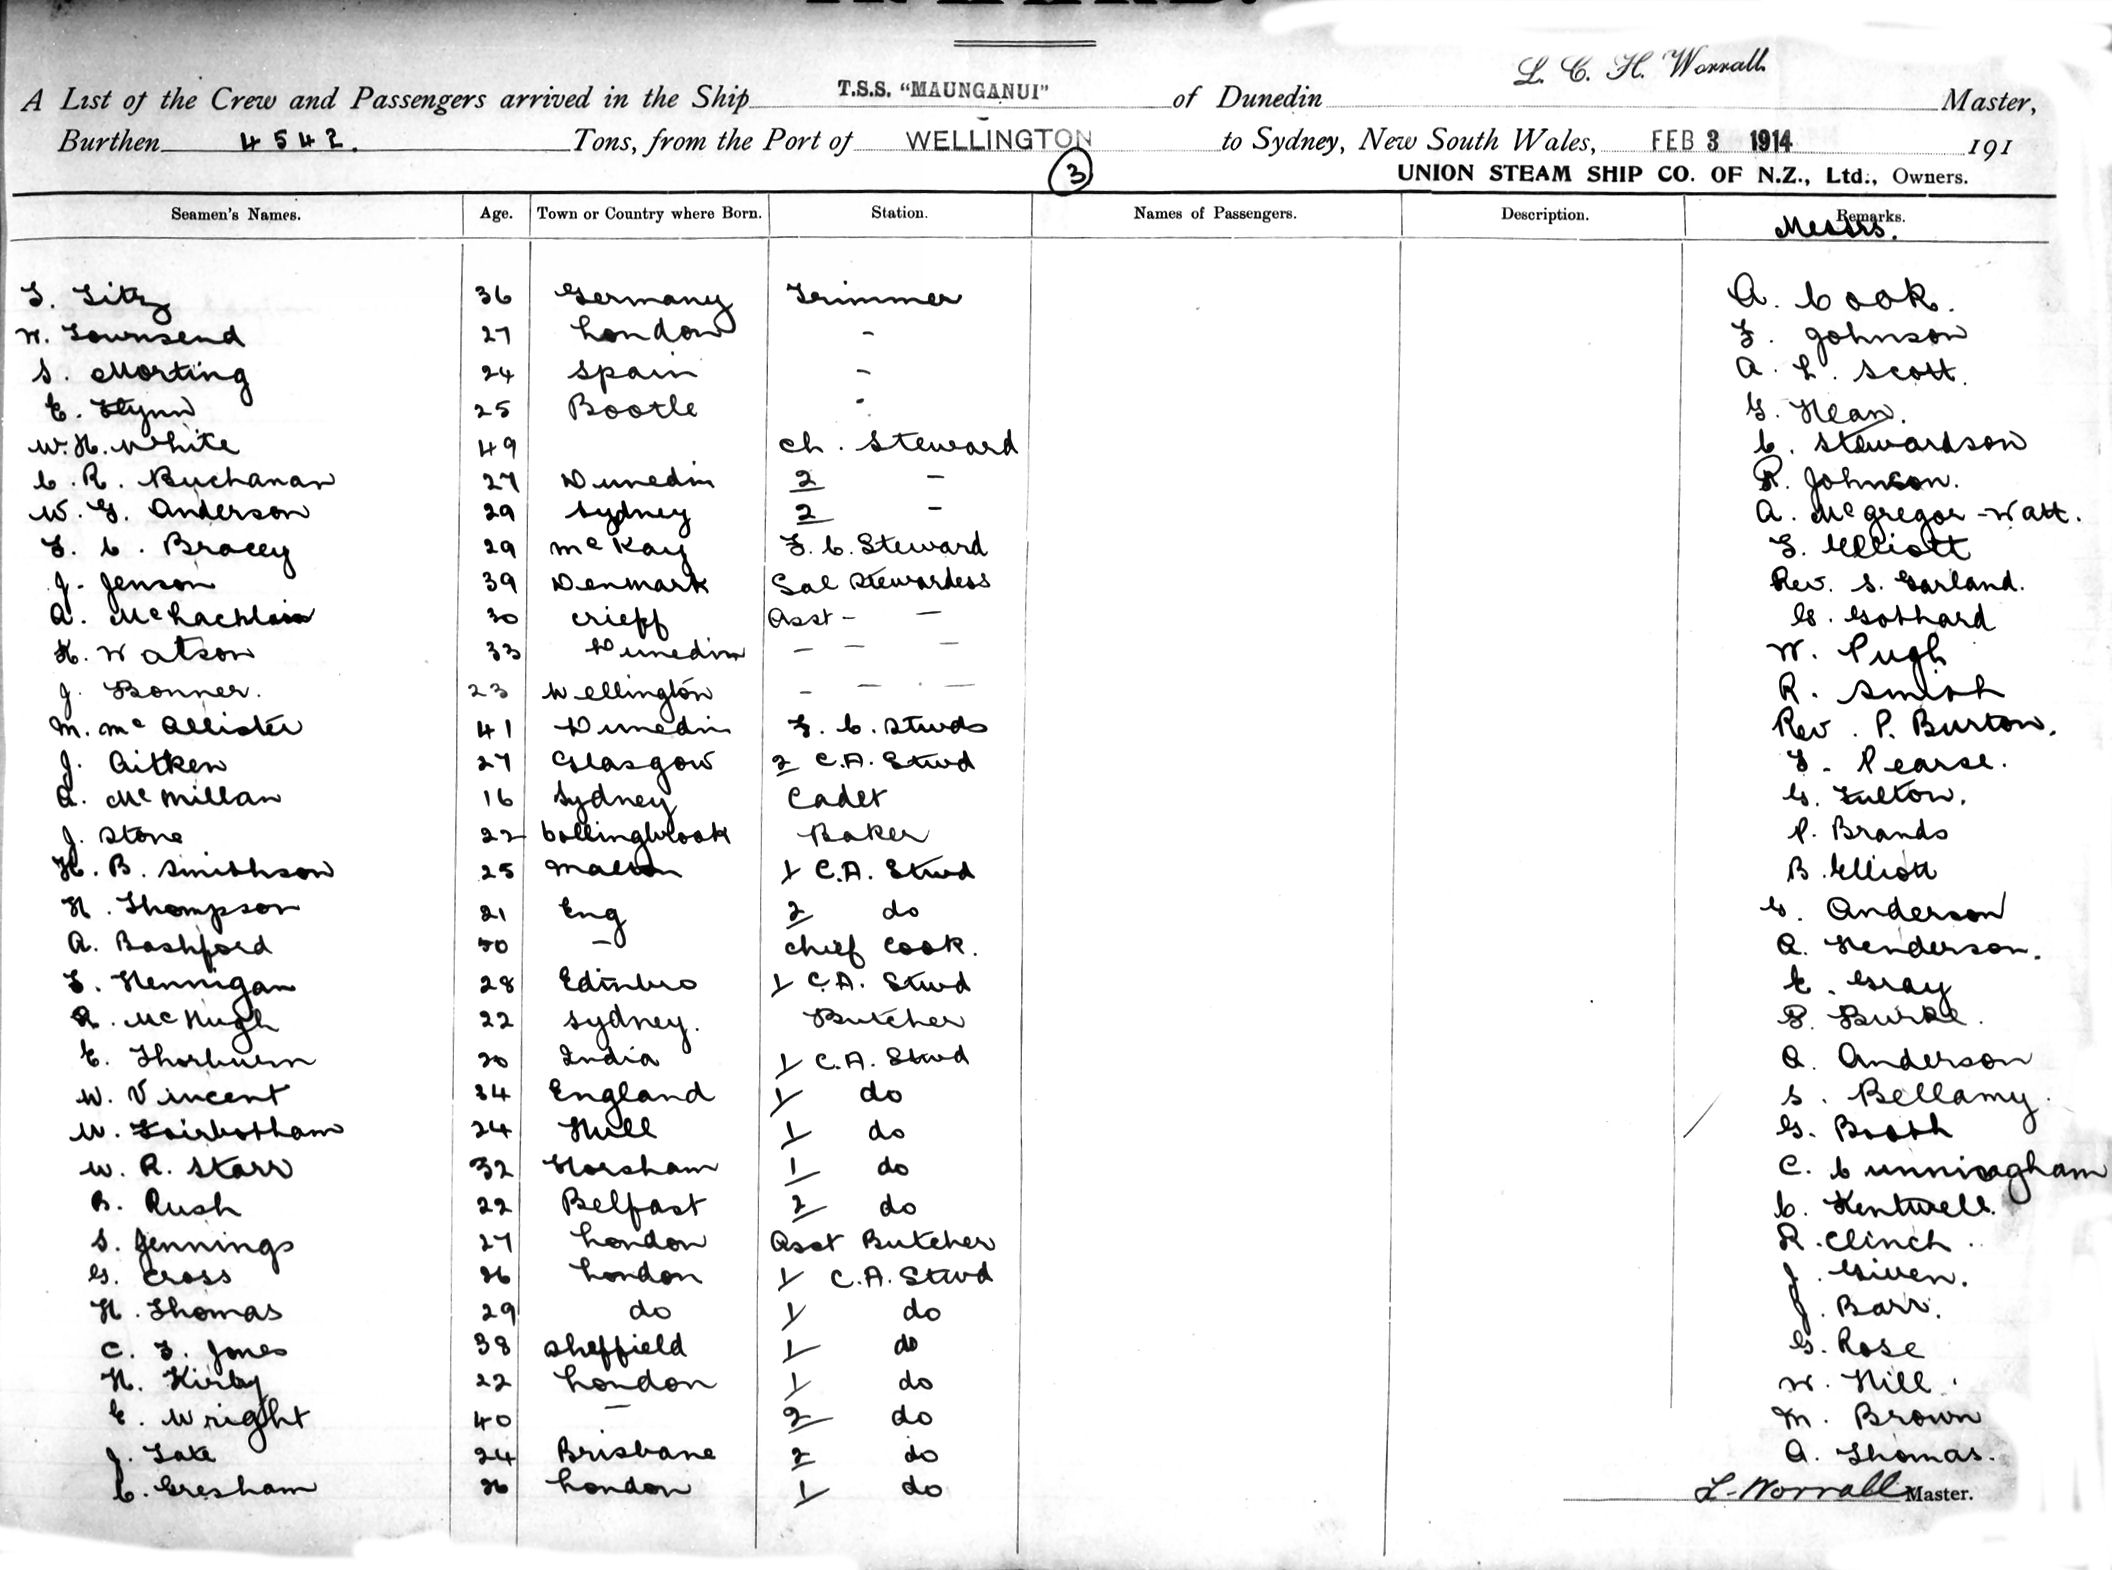 A List of the Crew and Passengers arrived in the Ship T.S.S. "MAUNGANUI" of Dunedin L. C. H. Worrall Master,
Burthen 4542. Tons, from the Port of WELLINGTON to Sydney, New South Wales, FEB 3 1914 191
3 UNION STEAM SHIP CO. OF N.Z., Ltd., Owners.
Seamen's Names. Age. Town or Country where Born. Station. Names of Passengers. Description. Remarks.
Messrs.
36 Germany Trimmer A. Cook.
W. Townsend 27 London - F. Johnson
S. Morting 24 Spain - A. L. Scott.
E. Flynn 25 Bootle - G. Hean.
W. H. White 49 Ch. Steward C. Stewardson
C. R. Buchanan 27 Dunedin 2 - R. Johnson.
W. G. Anderson 29 Sydney 2 - A. McGregor-Watt.
F. C. Bracey 29 McKay F. C. Steward Elliott
J. Jenson 39 Denmark Sal Stewardess Rev. S. Garland.
A. McLachlain 30 Crieff Asst - - G. Gothard
H. Watson 33 Dunedin - - - W. Pugh
J. Bonner. 23 Wellington - - - R. Smith
M. McAllister 41 Dunedin F. C. Stwds Rev. P. Burton.
J. Aitken 27 Glasgow 2 C.A. Stwd Pearse.
A. McMillan 16 Sydney Cadet G. Fulton.
J. Stone 22 Collingbrook Baker P. Brands
H. B. Smithson 25 Malton 1 C.A. Stwd B. Elliott
H. Thompson 21 Eng 2 do G. Anderson
A. Bashford 50 - Chief Cook. A. Henderson.
Hennigan 28 Edinbro 1 C.A. Stwd E. Gray
R. McHugh 22 Sydney. Butcher Burke.
E. Thorburn 20 India 1 C.A. Stwd A. Anderson
W. Vincent 34 England 1 do S. Bellamy.
W. Fairbotham 24 Hull 1 do G. Booth
W. R. Starr 32 Horsham 1 do C. Cunningham
B. Rush 22 Belfast 2 do C. Kentwell.
S. Jennings 27 London Asst Butcher R. Clinch.
G. Cross 26 London 1 C.A. Stwd J. Given.
H. Thomas 29 do 1 do J. Barr.
C. F. Jones 38 Sheffield 1 do G. Rose
H. Kirby 22 London 1 do W. Hill.
E. Wright 40 - 2 do M. Brown
J. Tate 24 Brisbane 2 do A. Thomas.
C. Gresham 26 London 1 do L. Worrall Master.